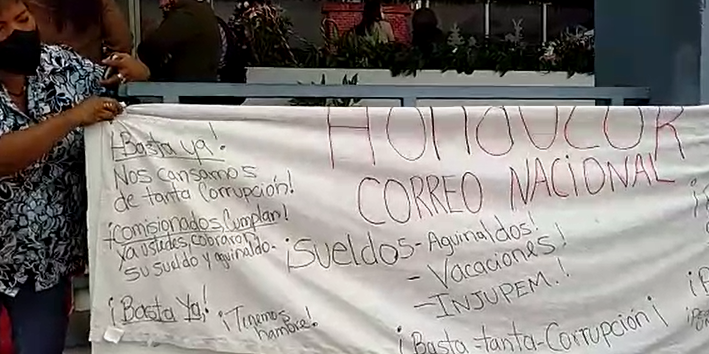 ¡Basta ya!
Nos cansamos
de tanta Corrupción!
¡Comisionados, Cumplan!
ya ustedes, cobraron
su sueldo y aguinaldo-
¡Basta Ya,!
¡Tenemos
hambre!
HONDUCOR
CORREO NACIONAL
¡SUELDOS-Aguinaldos!
-Vacaciones!
-INJUPEM.!
¡Basta tanta-Corrupción¡